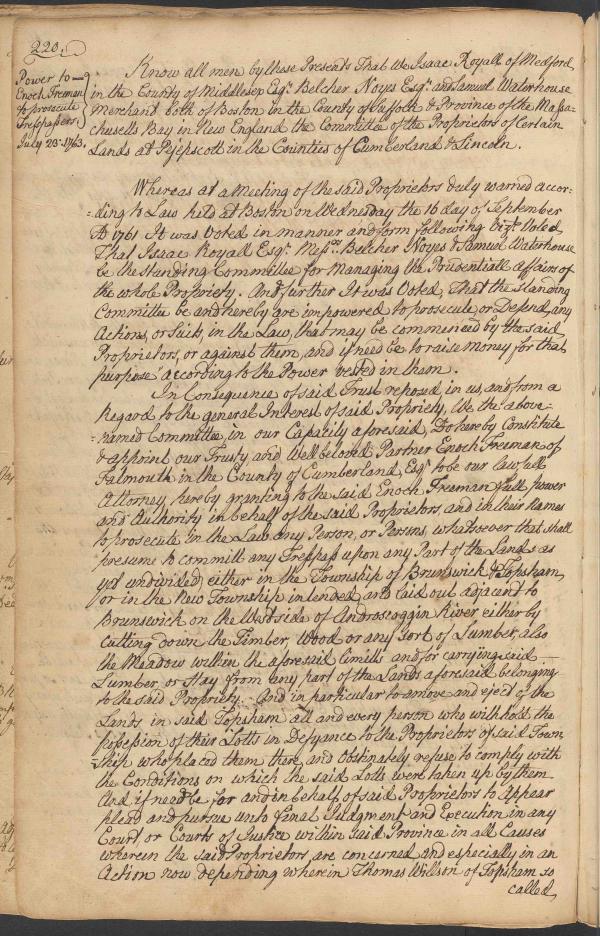 220.
Power to
Enoch Freeman
to prosecute
Tresspassers.
July 28. 1763.
Know all men by these Presents That We Isaac Royall of Medford
in the County of Middlesex Esqr. Belcher Noyes Esqr. and Samuel Waterhouse
Merchant both of Boston in the County of Suffolk & Province of the Massa-
chusetts Bay in New England the Committee of the Proprietors of Certain
Lands at Pejepscott in the Counties of Cumberland & Lincoln.
Whereas at a Meeting of the said Proprietors duly warned accor-
-ding to Law held at Boston on Wednesday the 16 day of September
1761 It was Voted in manner and form following Vizt. Voted
That Isaac Royall Esqr. Messrs. Belcher Noyes & Samuel Waterhouse
be the Standing Committee for Managing the Prudentiall affairs of
the whole Propriety. And further It was Voted, That the Standing
Committee be and hereby are impowered to prosecute, or Defend, any
Actions, or Suits, in the Law, that may be commenced by the said
Proprietors, or against them, and if need be to raise Money for that
purpose according to the Power vested in them.
In Consequence of said Trust reposed in us, and from a
Regard to the general Interest of said Propriety, We the above-
-named Committee, in our Capacity aforesaid, Do hereby Constitute
& appoint our Trusty and Wellbeloved Partner Enoch Freeman of
Falmouth in the County of Cumberland, Esqr. to be our lawfull
Attorney hereby granting to the said Enoch Freeman full power
and Authority in behalf of the said Proprietors, and in their Names
to prosecute in the Law any Person, or Persons, whatsoever that shall
presume to committ any Tresspass upon any Part of the Lands as
yet undivided, either in the Township of Brunswick & Topsham,
or in the New Township intended, and laid out adjacent to
Brunswick on the Westside of Androscoggin River, either by
Cutting down the Timber, Wood or any Sort of Lumber, also
the Meadow within the aforesaid limitts and for carrying said
Lumber, or Hay from any part of the Lands aforesaid belonging
to the said Propriety. And in particular to amove and eject of the
Lands in said Topsham all and every person who withhold the
possession of their Lotts in Defyance to the Proprietors of said Town
-ship who placed them there, and Obstinately refuse to comply with
the Conditions on which the said Lotts were taken up by them
And if need be for and in behalf of said Proprietors to Appear
plead and pursue unto final Judgment and Execution in any
Court, or Courts of Justice within said Province in all Causes
wherein the said Proprietors, are concerned and especially in an
Action now depending wherein Thomas Willson of Topsham so
called,